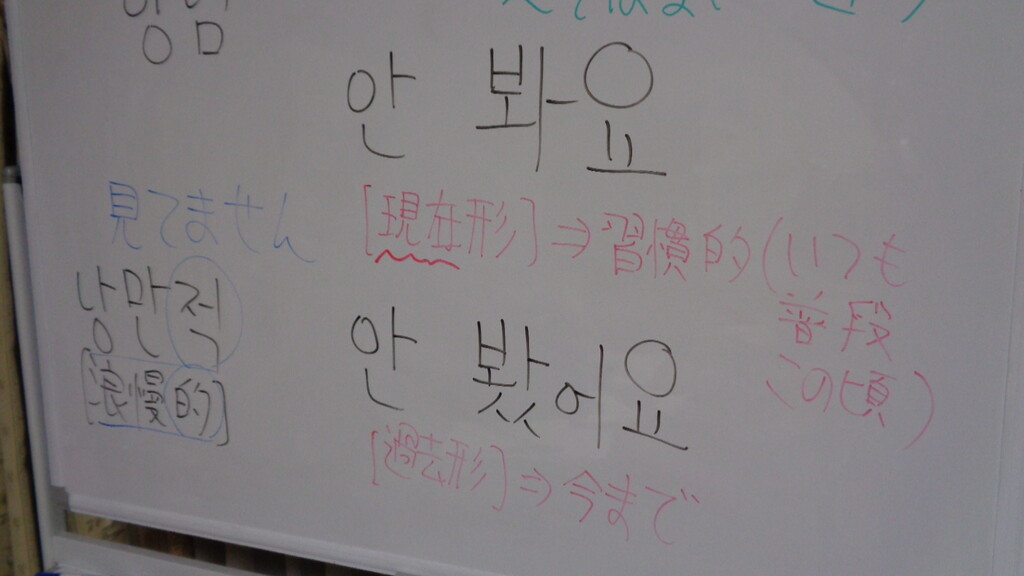 안 봐요
見てません
[現在形]⇒習慣的(いつも
普段
この頃)
낭만적
[浪漫的]
안 봤어요
[過去形]⇒今まで